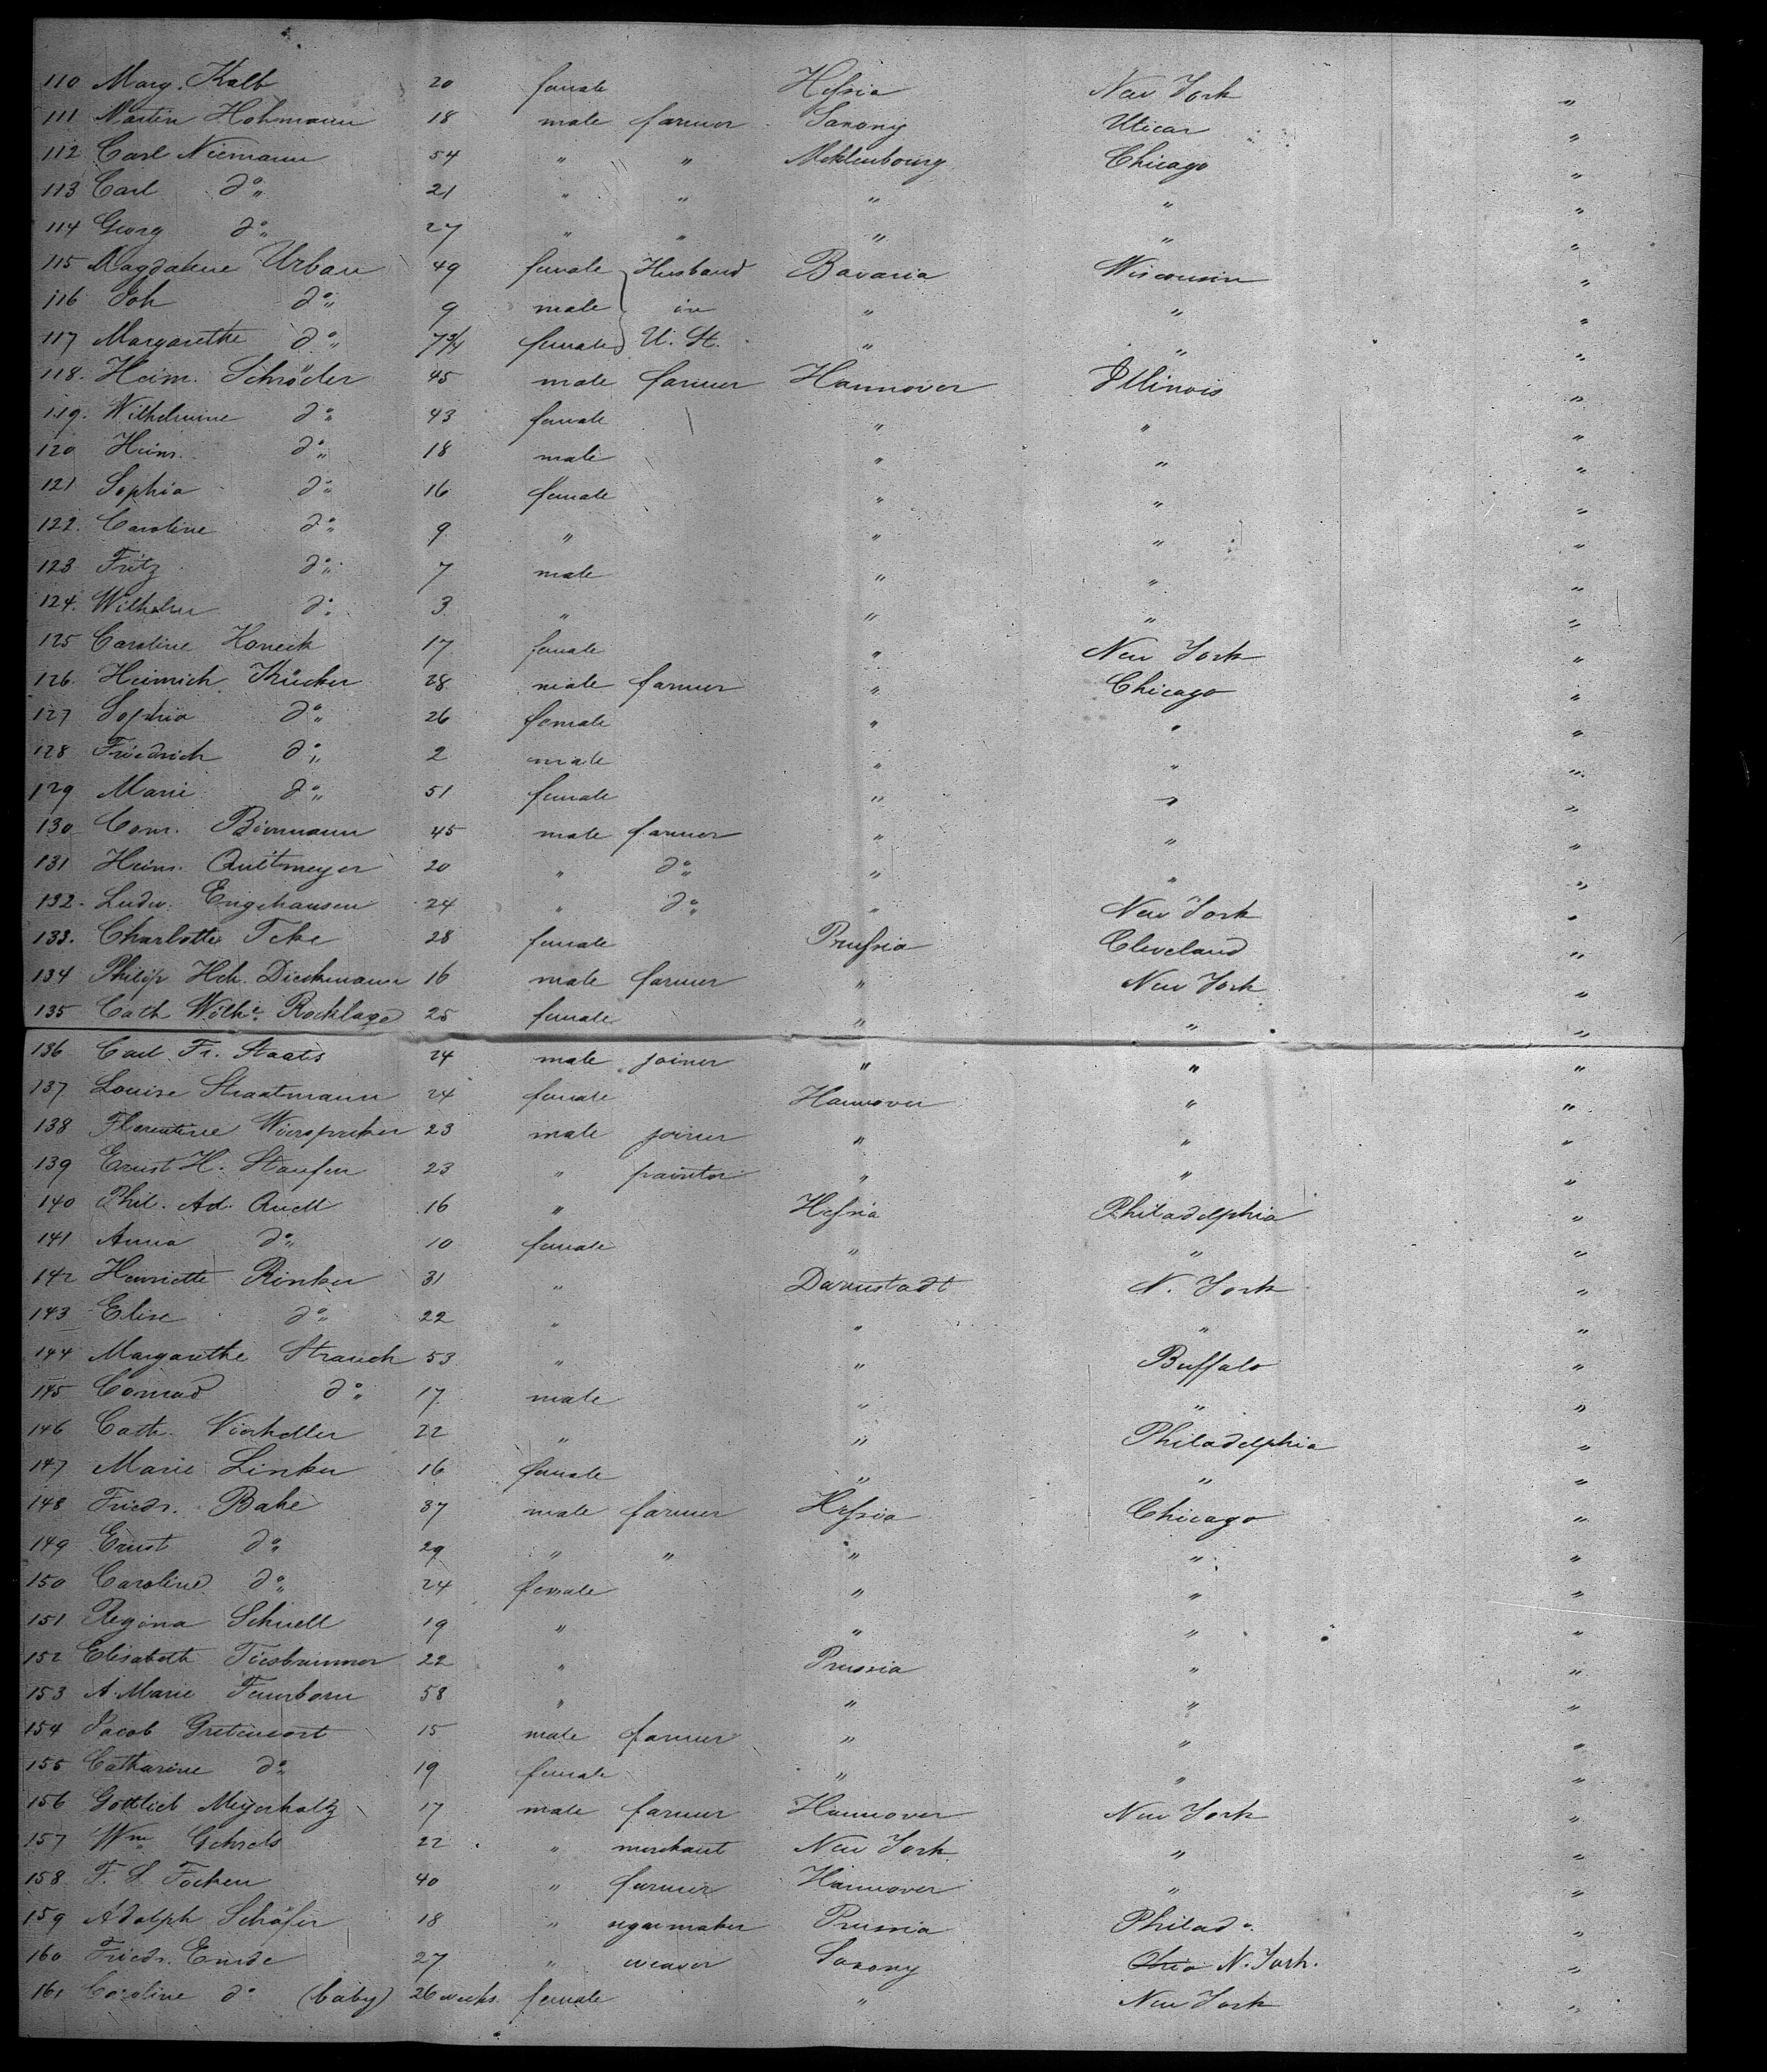 110 Marg. Kalb 20 female Hessia New York "
111 Martin Hohmann 18 male farmer Saxony Uticar "
112 Carl Niemann 54 " " Meklenbourg Chicago "
113 Carl do 21 " " " " "
114 Georg do 27 " " " " "
115 Magdalene Urban 49 female Husband Bavaria Wisconsin "
116 Joh do 9 male in " " "
117 Margarethe do 7 3/4 female U. St. " " "
118. Heinr. Schröder 45 male farmer Hannover Illinois "
119. Wilhelmine do 43 female " " "
120 Heinr. do 18 male " " "
121 Sophia do 16 female " " "
122. Caroline do 9 " " " "
123 Fritz do 7 male " " "
124. Wilhelm do 3 " " " "
125 Caroline Honeck 17 female " New York "
126. Heinrich Kücker 28 male farmer " Chicago "
127 Sophia do 26 female " " "
128 Friedrich do 2 male " " "
129 Marie do 51 female " " "
130 Conr. Birnmann 45 male farmer " " "
131 Heinr. Quitmeyer 20 " do " " "
132. Ludw. Engehausen 24 " do " New York "
133. Charlotte Teke 28 female Prussia Cleveland "
134 Philip Hch. Dieckmann 16 male farmer " New York "
135 Cath Wilhe. Rocklage 25 female " " "
136 Carl. Fr. Staats 24 male joiner " " "
137 Louise Straatmann 24 female Hannover " "
138 Florentine 23 male joiner " " "
139 Ernst H. Staufen 23 " painter " " "
140 Phil. Ad. Quell 16 " Hessia Philadelphia "
141 Anna do 10 female " " "
142 Henriette Rinker 31 " Darmstadt N. York "
143 Elise do 22 " " " "
144 Margarethe Strauch 53 " " Buffalo "
145 Conrad do 17 male " " "
146 Cath. Vierheller 22 " " Philadelphia "
147 Marie Linker 16 female " " "
148 Friedr. Bake 37 male farmer Hessia Chicago "
149 Ernst do 29 " " " " "
150 Caroline do 24 female " " "
151 Regina Schnell 19 " " " "
152 Elisabeth Tiesbrummer 22 " Prussia " "
153 A. Marie Feuerborn 58 " " " "
154 Jacob Gretencort 15 male farmer " " "
155 Catharine do 19 female " " "
156 Gottlieb Meyerholtz 17 male farmer Hannover New York "
157 Wm Gehrels 22 " merchant New York " "
158 F. S. Focken 40 " farmer Hannover " "
159 Adolph Schäfer 18 " segarmaker Prussia Philada. "
160 Friedr. Emde 27 " weaver Saxony Ohio N. York. "
161 Caroline do (baby) 26 weeks. female " New York "